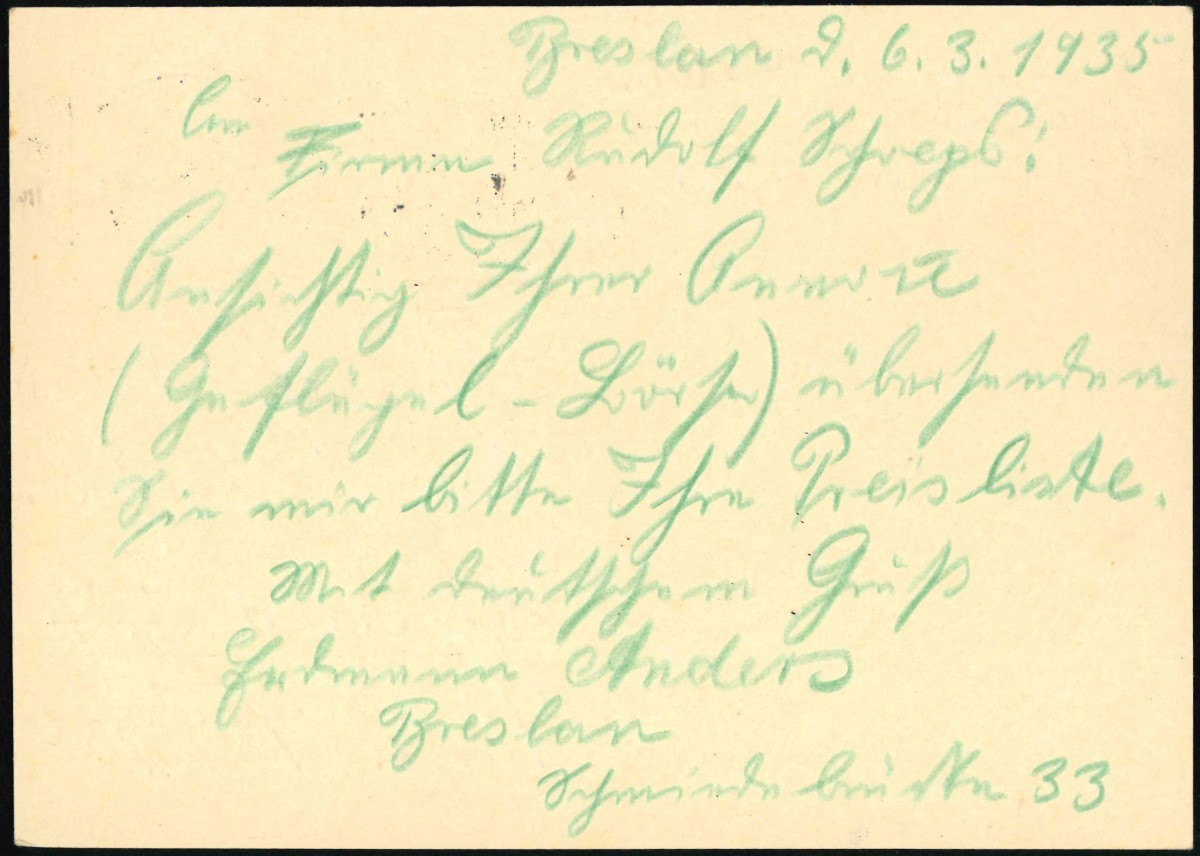 Breslau d. 6.3.1935
Firma Rudolf Schreps!
Ansichtig Ihrer Annonce
(Geflügel-Börse) übersenden
Sie mir bitte Ihre Preisliste.
Mit deutschem Gruß
Erdmann Anders
Breslau
Schmiedebrücke 33